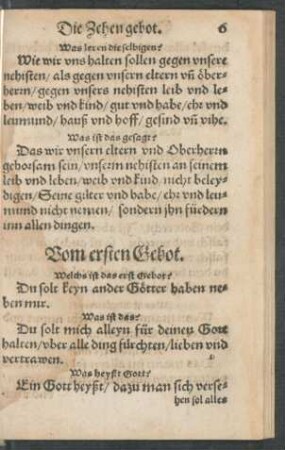 Die Zehen gebot. 6
Was leren die selbigen?
Wie wir vns halten sollen gegen vnsere
nehisten/ als gegen vnsern eltern vñ öber-
herrn/ gegen vnsers nehisten leib vnd le-
ben/ weib vnd kind/ gut vnd habe/ ehr vnd
leumund/ hauß vnd hoff/ gesind vñ vihe.
Was ist das gesagt?
Das wir vnsern eltern vnd Oberherrn
gehorsam sein/ vnserm nehisten an seinem
leib vnd leben/ weib vnd kind nicht beley-
digen/ Seine güter vnd habe/ ehr vnd leu-
mund nicht nemen/ sondern jhn fürdern
inn allen dingen.
Vom ersten Gebot.
Welchs ist das erst Gebot?
Du solt keyn ander Götter haben ne-
ben mir.
Was ist das?
Du solt mich alleyn für deinen Gott
halten/ vber alle ding fürchten/ lieben vnd
vertrawen.
Was heyßt Gott?
Ein Gott heyßt/ dazu man sich verse-
hen sol alles